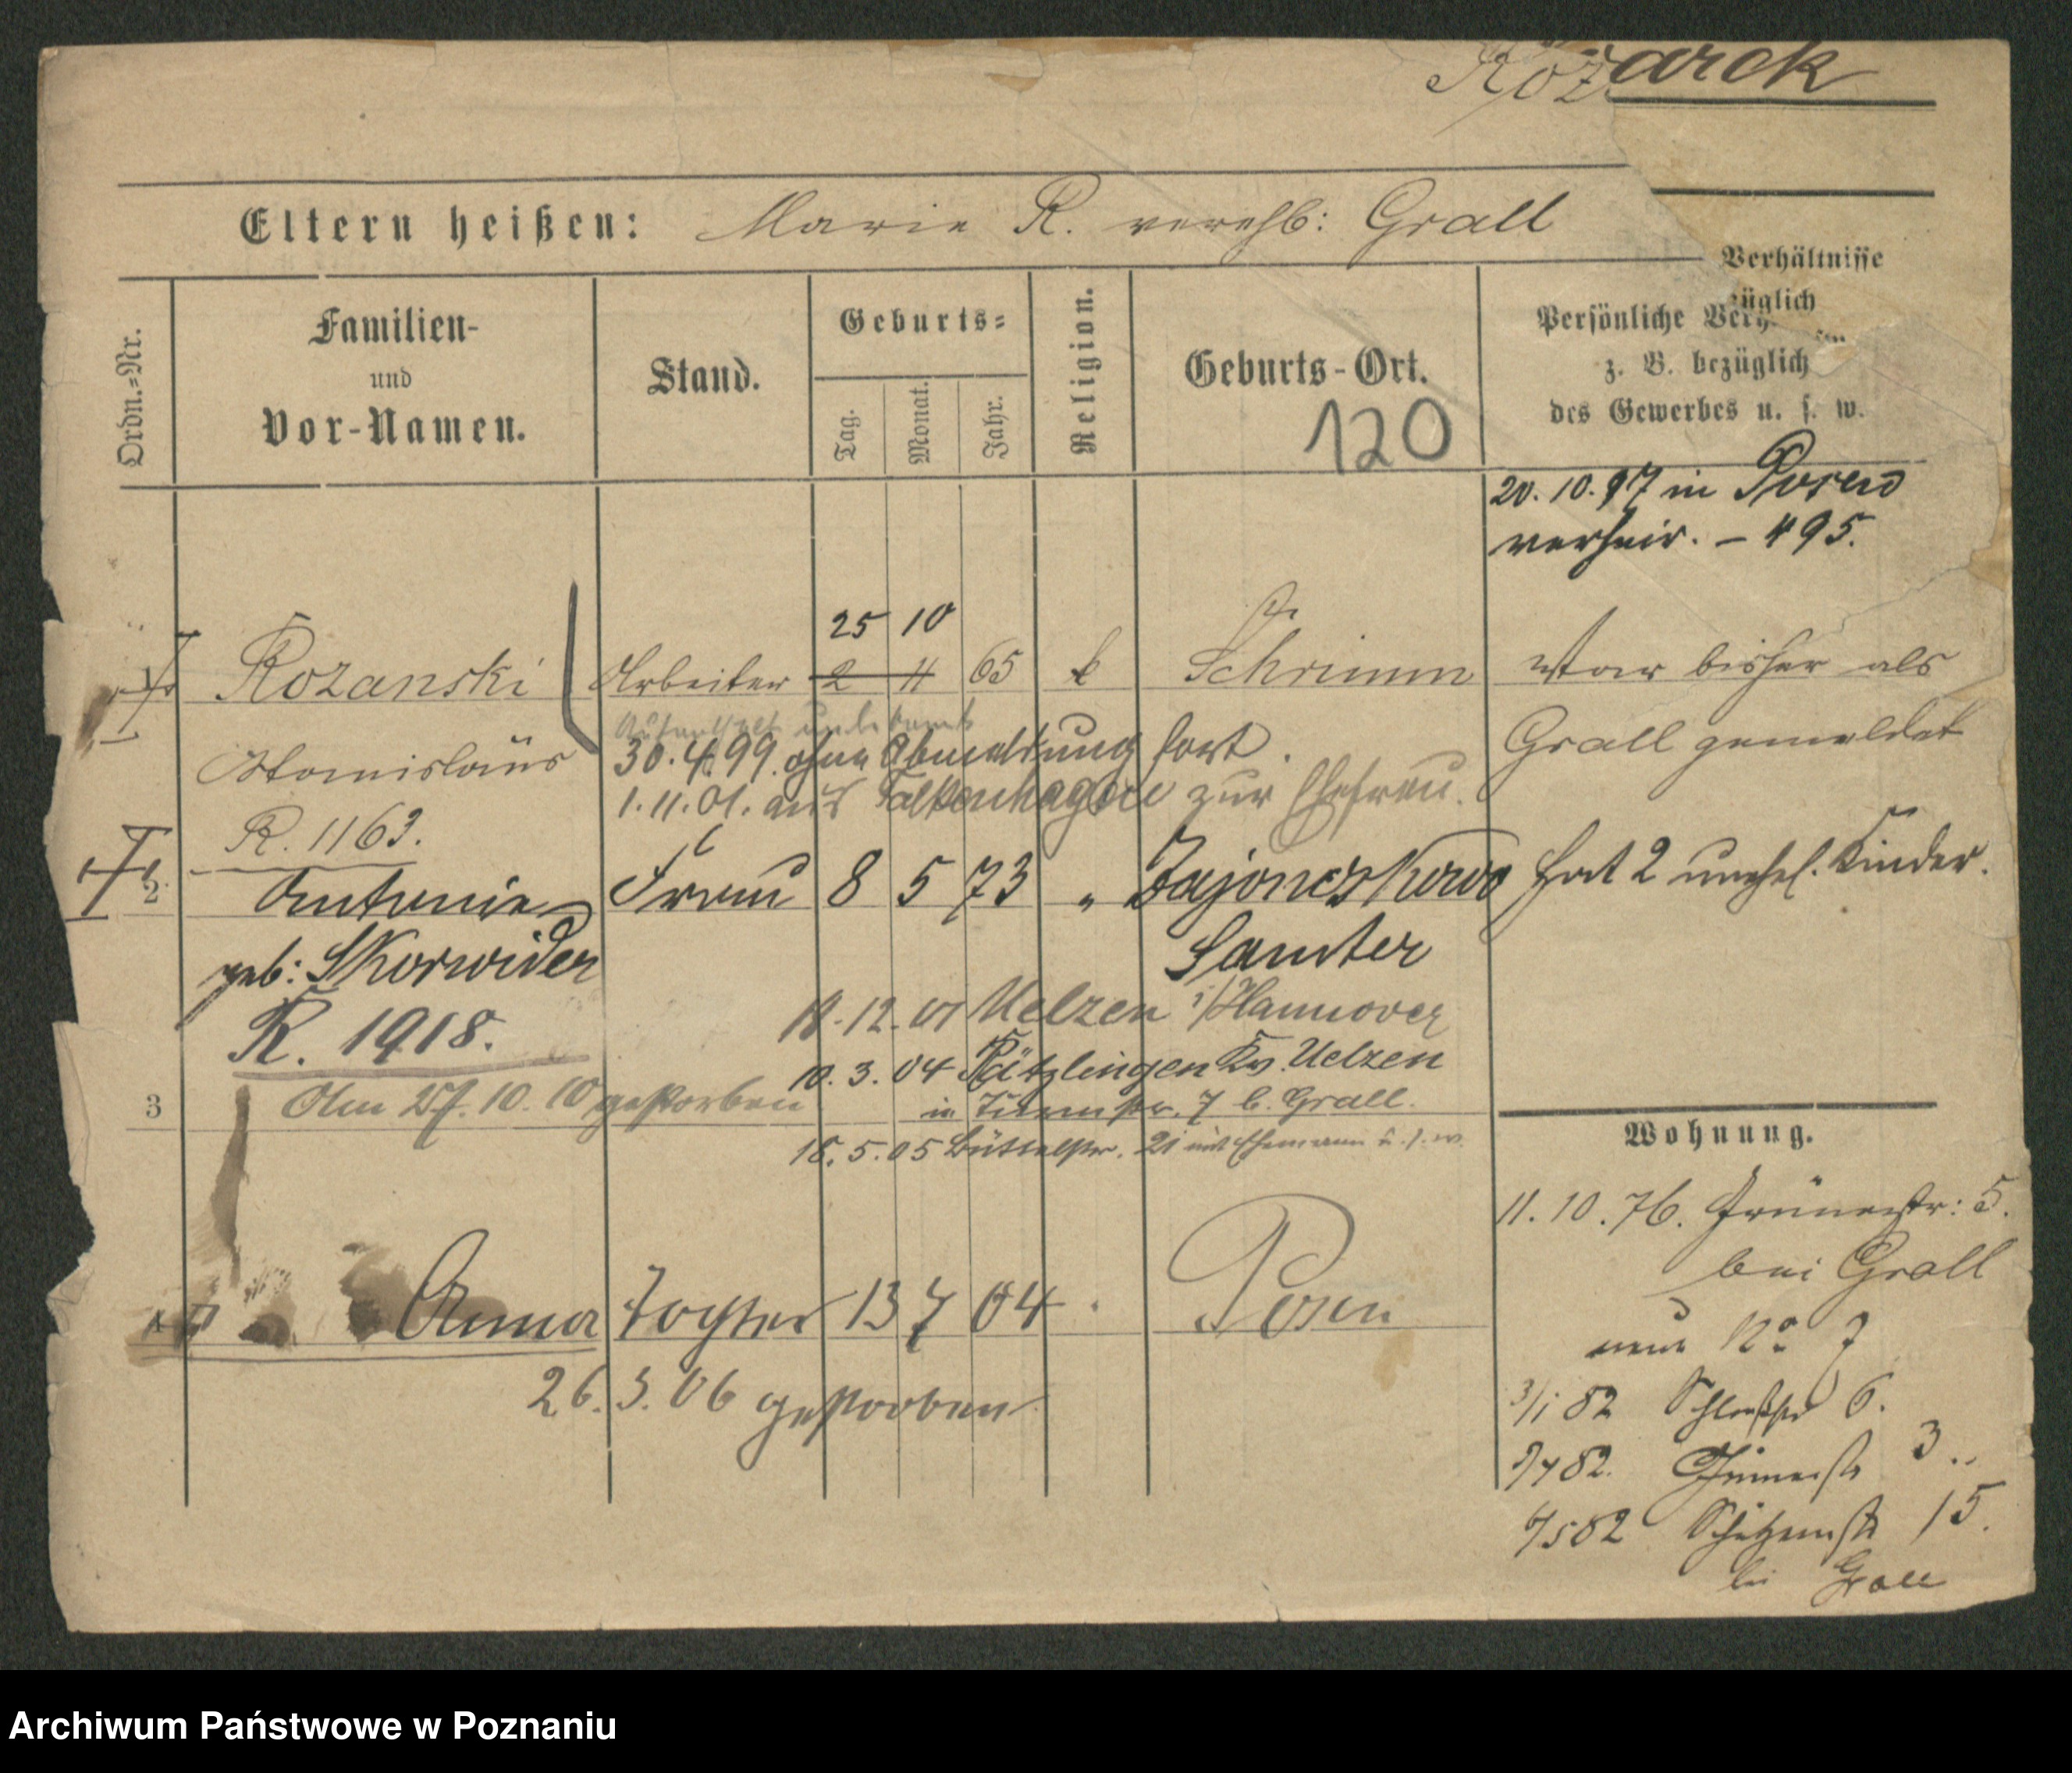 Roż arek
Eltern heißen: Marie R. verehb: Grall
Ordn.=Nr.
Familien-
und
Vor-Namen.
Stand.
Geburts=
Tag.
Monat.
Jahr.
Religion.
Geburts-Ort.
120
Verhältnisse
züglich
Persönliche Verh
z. B. bezüglich
des Gewerbes u. s. w.
20. 10. 97 in Posen
verheir. – 495.
25 10
1 Rozanski Arbeiter 2 4 65 k Schrimm War bisher als
Aufenthalt unbekannt
Stanislaus 30. 4. 99. ohne Abmeldung fort. Grall gemeldet
1. 11. 01. aus Falkenhagen zur Ehefrau.
R. 1163.
2 Antonie Frau 8 5 73 " Zajonczkowo hat 2 unehel. Kinder.
geb: Skorwider Samter
R. 1918. 18. 12. 01 Uelzen i/Hannover
10. 3. 04 Rätzlingen Kr. Uelzen
3 Am 27. 10. 10 gestorben in Turmstr. 7 b. Grall.
18. 5. 05 Büttelstr. 21 mit Ehemann u. s. w.
Wohnung.
11. 10. 76. Grünestr: 5.
bei Grall
4 Anna Tochter 13 7 04 Posen
neue No 7
26. 3. 06 gestorben
3/1 82 Schloßstr 6.
82. 3
82 Schützenstr 15.
bei Grall
Archiwum Państwowe w Poznaniu